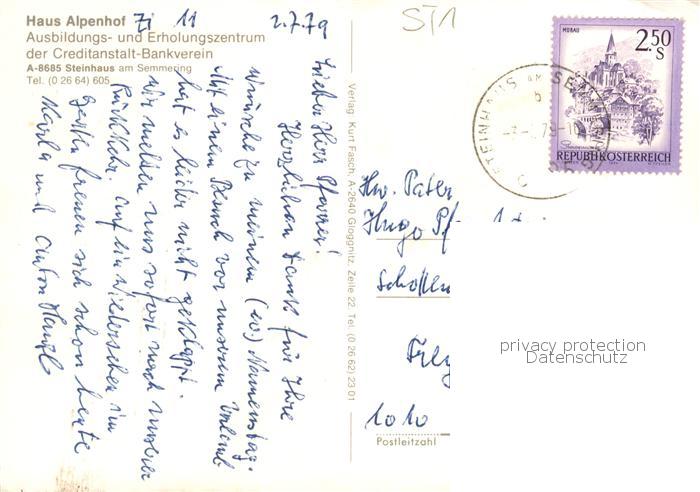 Haus Alpenhof
Ausbildungs- und Erholungszentrum
der Creditanstalt-Bankverein
A-8685 Steinhaus am Semmering
Tel. (0 26 64) 605
Zi 11
2.7.79
Lieber Herr Pfarrer!
Herzlichen Dank für Ihre
Wünsche zu meinem Namenstag.
Mit einem Besuch vor unserem Urlaub
hat es leider nicht geklappt.
Wir melden uns sofort nach unserer
Rückkehr. Auf ein Wiedersehen im
freuen sich schon heute
und Anton
Verlag: Kurt Fasch, A-2640 Gloggnitz, Zeile 22, Tel. (0 26 62) 23 01
ST1
STEINHAUS AM SEMMERING
MURAU
2.50
S
REPUBLIK ÖSTERREICH
Hw. Pater
Hugo Pf
Schotten
Frey
1010
Postleitzahl
privacy protection
Datenschutz